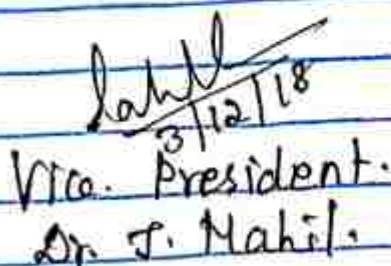 3/12/18
Vice. President.
Dr. J. Mahil.